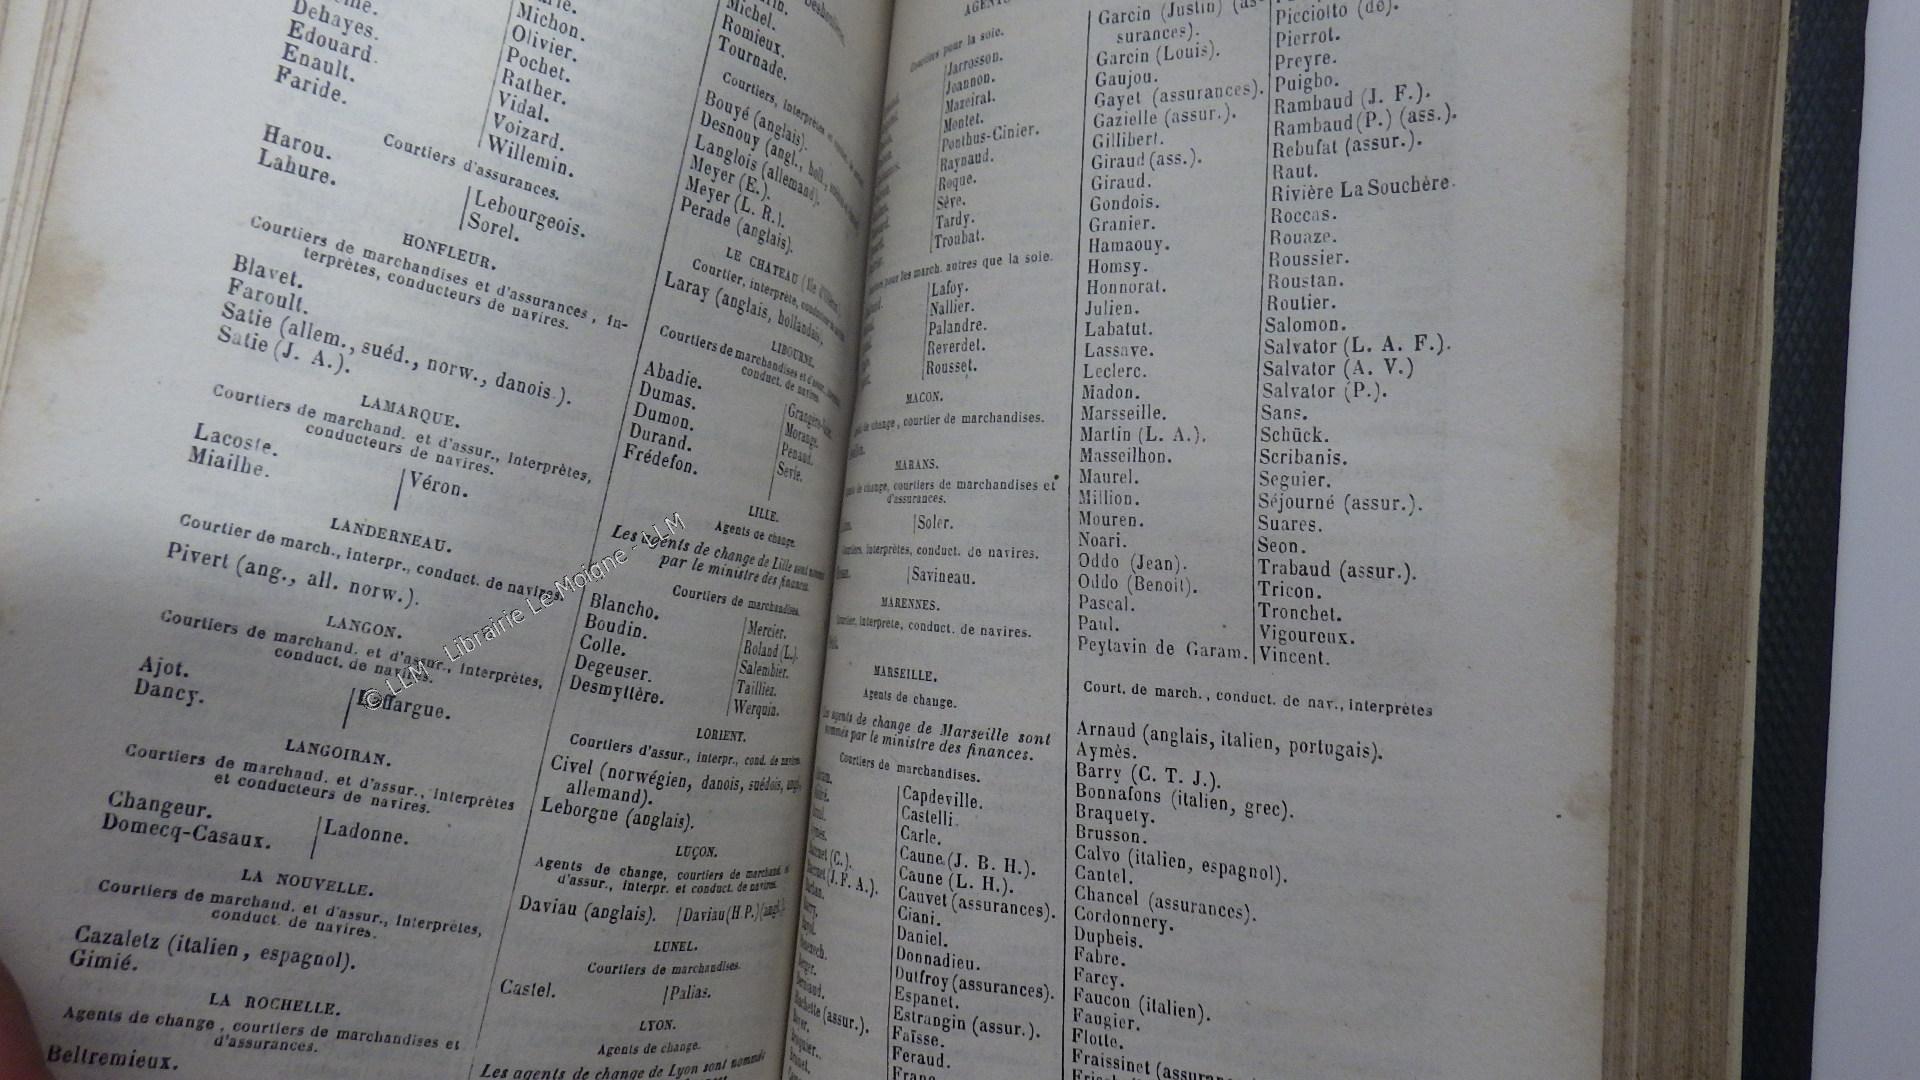 Dehayes.
Edouard.
Enault.
Faride.
Michon.
Olivier.
Pochet.
Rather.
Vidal.
Voizard.
Willemin.
Courtiers d'assurances.
Harou.
Lahure.
Lebourgeois.
Sorel.
HONFLEUR.
Courtiers de marchandises et d'assurances, in-
terprètes, conducteurs de navires.
Blavet.
Faroult.
Satie (allem., suéd., norw., danois.).
Satie (J. A.).
LAMARQUE.
Courtiers de marchand. et d'assur., interprètes,
conducteurs de navires.
Lacoste.
Miailhe.
Véron.
LANDERNEAU.
Courtier de march., interpr., conduct. de navires.
Pivert (ang., all. norw.).
LANGON.
Courtiers de marchand. et d'assur., interprètes,
conduct. de navires.
Ajot.
Dancy.
Laffargue.
LANGOIRAN.
Courtiers de marchand. et d'assur., interprètes
et conducteurs de navires.
Changeur.
Domecq-Casaux.
Ladonne.
LA NOUVELLE.
Courtiers de marchand. et d'assur., interprètes,
conduct. de navires.
Cazaletz (italien, espagnol).
Gimié.
LA ROCHELLE.
Agents de change, courtiers de marchandises et
d'assurances.
Beltremieux.
Michel.
Romieux.
Tournade.
Courtiers, interprètes
Bouyé (anglais).
Desnouy (angl., holl.,
Langlois (allemand).
Meyer (E.).
Meyer (L. R.).
Perade (anglais).
LE CHATEAU
Courtier, interprète,
Laray (anglais, hollandais).
LIBOURNE.
Courtiers de marchandises et d'assur.,
conduct. de navires.
Abadie.
Dumas.
Dumon.
Durand.
Frédefon.
Morange.
Penaud.
Sevie.
LILLE.
Agents de change.
Les agents de change de Lille sont
par le ministre des finances.
Courtiers de marchandises.
Blancho.
Boudin.
Colle.
Degeuser.
Desmyttère.
Mercier.
Roland (L.).
Salembier.
Tailliez.
Werquin.
LORIENT.
Courtiers d'assur., interpr., cond. de navires.
Civel (norwégien, danois, suédois, angl.,
allemand).
Leborgne (anglais).
LUÇON.
Agents de change, courtiers de marchand. et
d'assur., interpr. et conduct. de navires.
Daviau (anglais).
Daviau (H P.) (angl.).
LUNEL.
Courtiers de marchandises.
Castel.
Palias.
LYON.
Agents de change.
Les agents de change de Lyon sont nommés
AGENTS
Courtiers pour la soie.
Jarrosson.
Joannon.
Mazeirat.
Montet.
Ponthus-Cinier.
Raynaud.
Roque.
Sève.
Tardy.
Troubat.
pour les march. autres que la soie.
Lafoy.
Nallier.
Palandre.
Reverdet.
Rousset.
MACON.
de change, courtier de marchandises.
MARANS.
de change, courtiers de marchandises et
d'assurances.
Soler.
Courtiers, interprètes, conduct. de navires.
Savineau.
MARENNES.
Courtier, interprète, conduct. de navires.
MARSEILLE.
Agents de change.
Les agents de change de Marseille sont
nommés par le ministre des finances.
Courtiers de marchandises.
Capdeville.
Castelli.
Carle.
Caune (J. B. H.).
Caune (L. H.).
Cauvet (assurances).
Ciani.
Daniel.
Donnadieu.
Dutfroy (assurances).
Espanet.
Estrangin (assur.).
Faïsse.
Feraud.
Garcin (Justin) (as-
surances).
Garcin (Louis).
Gaujou.
Gayet (assurances).
Gazielle (assur.).
Gillibert.
Giraud (ass.).
Giraud.
Gondois.
Granier.
Hamaouy.
Homsy.
Honnorat.
Julien.
Labatut.
Lassave.
Leclerc.
Madon.
Marsseille.
Martin (L. A.).
Masseilhon.
Maurel.
Million.
Mouren.
Noari.
Oddo (Jean).
Oddo (Benoit).
Pascal.
Paul.
Peytavin de Garam.
Picciotto (de).
Pierrot.
Preyre.
Puigbo.
Rambaud (J. F.).
Rambaud (P.) (ass.).
Rebufat (assur.).
Raut.
Rivière La Souchère.
Roccas.
Rouaze.
Roussier.
Roustan.
Routier.
Salomon.
Salvator (L. A. F.).
Salvator (A. V.)
Salvator (P.).
Sans.
Schück.
Scribanis.
Seguier.
Séjourné (assur.).
Suares.
Seon.
Trabaud (assur.).
Tricon.
Tronchet.
Vigoureux.
Vincent.
Court. de march., conduct. de nav., interprètes
Arnaud (anglais, italien, portugais).
Aymès.
Barry (C. T. J.).
Bonnafons (italien, grec).
Braquety.
Brusson.
Calvo (italien, espagnol).
Cantel.
Chancel (assurances).
Cordonnery.
Dupbeis.
Fabre.
Farcy.
Faucon (italien).
Faugier.
Flotte.
Fraissinet (assurances
© LLM - Librairie Le Moigne - LLM